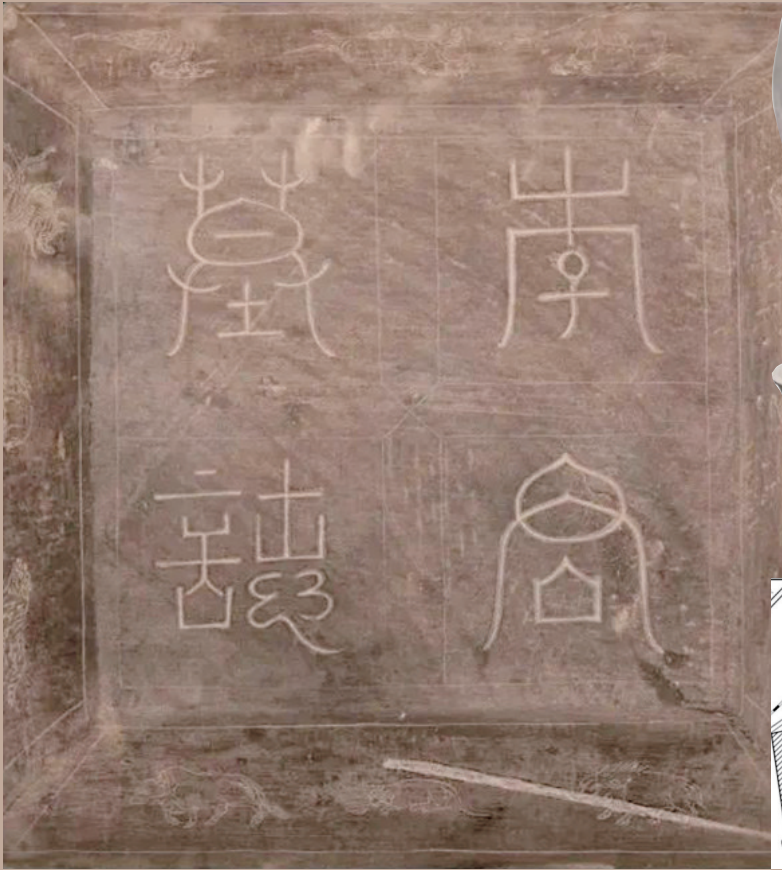 南宮
墓誌